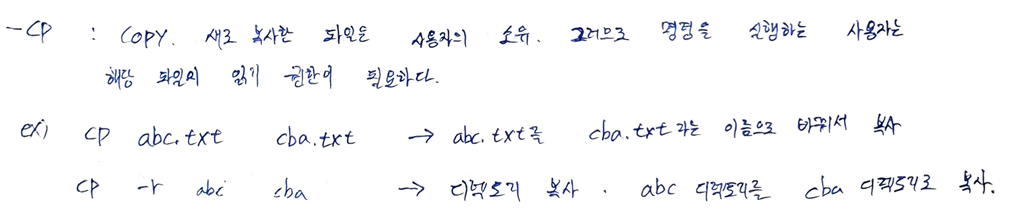 -cp : copy. 새로 복사한 파일은 사용자의 소유. 그러므로 명령을 실행하는 사용자는
해당 파일의 읽기 권한이 필요하다.
ex) cp abc.txt cba.txt → abc.txt를 cba.txt라는 이름으로 바꿔서 복사
cp -r abc cba → 디렉토리 복사. abc 디렉토리를 cba 디렉토리로 복사.